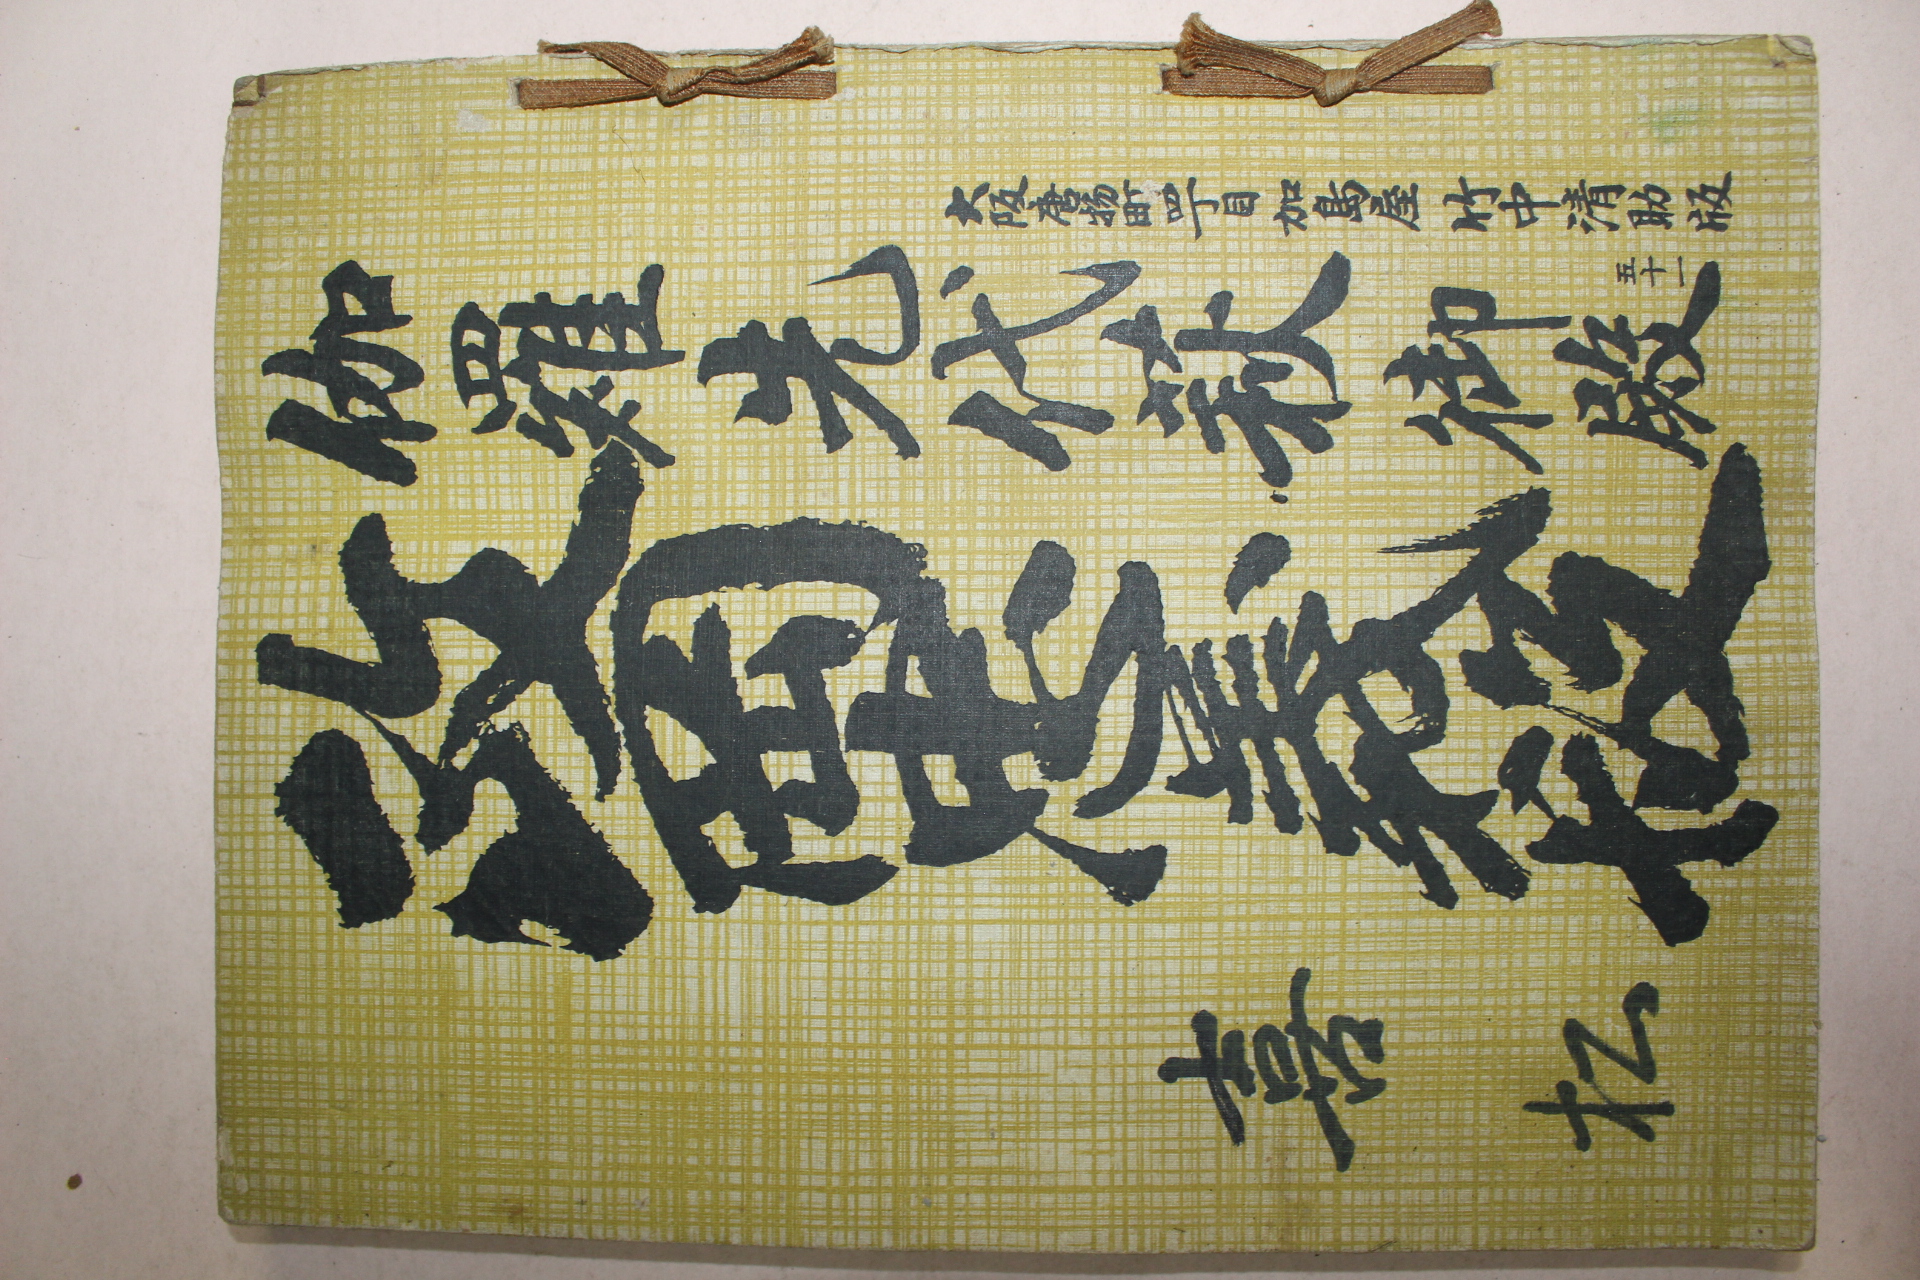 大阪唐物町四丁目 加島屋 竹中清助版
伽羅先代萩 御殿
五十一
政岡忠義段
喜松